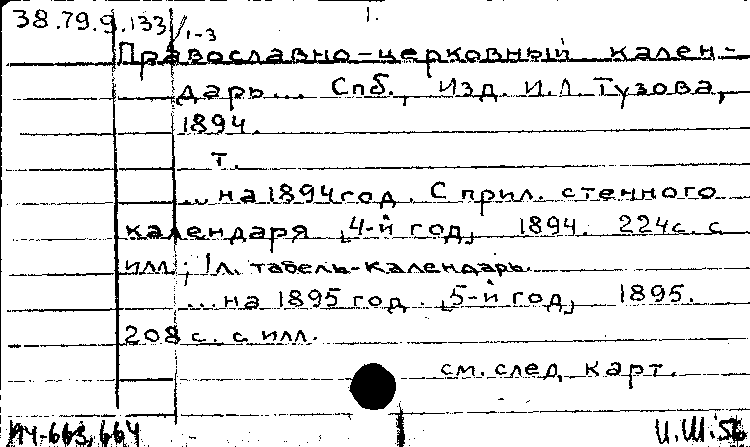 38.79.9.133/1-3
1.
Православно-церковный кален-
дарь... Спб., Изд. И.Л. Тузова,
1894.
т.
...на 1894 год. С прил. стенного
календаря [4-й год] 1894. 224 с. с
илл.; 1 л. табель-календарь.
...на 1895 год. [5-й год] 1895.
208 с. с илл.
см. след. карт.
ИЧ-663,664
И.Ш. 56